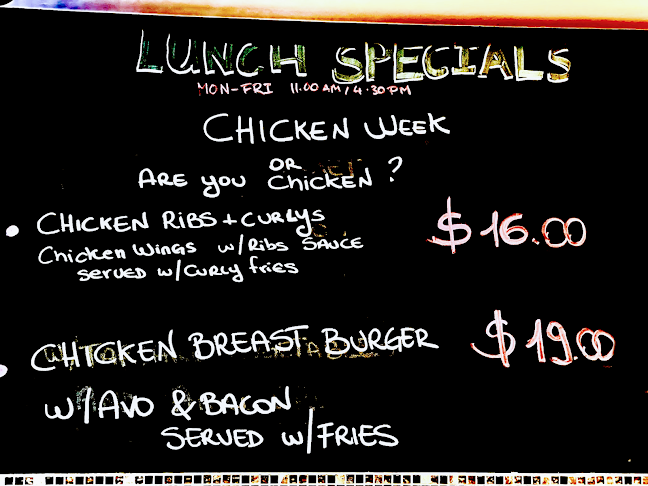 LUNCH SPECIALS
MON-FRI 11.00 AM / 4.30 PM
CHICKEN WEEK
ARE you OR CHICKEN ?
• CHICKEN RIBS + CURLYS $16.00
Chicken WINGS w/Ribs SAUCE
SERVED w/CURLY fries
• CHICKEN BREAST BURGER $19.00
W/AVO & BACON
SERVED W/FRIES